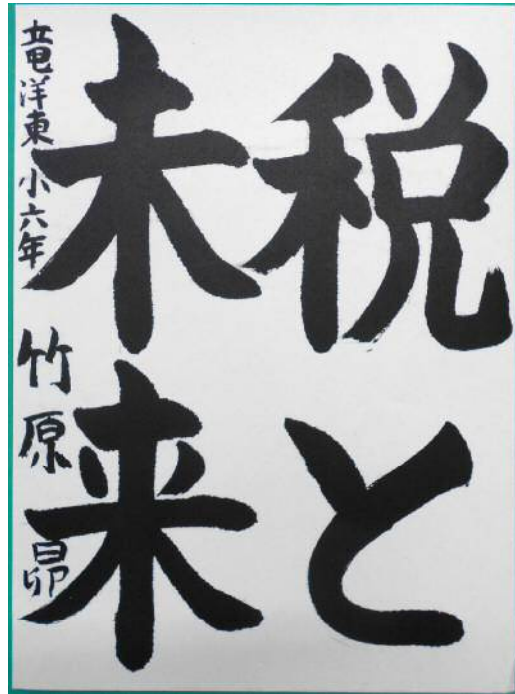 税と
未来
竜洋東小六年 竹原昴